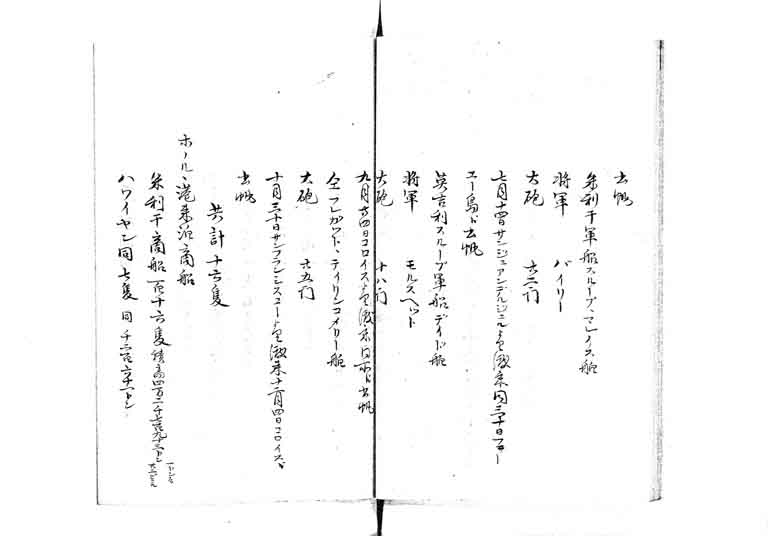 出帆
米利干軍船スループ、マレイス船
将軍 バイリー
大砲 六二门
七月十四日サンジュアンデルシュルより渡来同三十日フエー
エー島に出帆
英吉利スループ軍船デイド船
将軍 モルスヘット
大砲 十八门
九月廿四日コロイスより渡来同所に出帆
仝フレガット、テイリンコメリー船
大砲 六五门
十月三十日サンフランシスコーより渡来十二月四日コロイスに
出帆
共計十六隻
ホノルヽ港来泊商船
米利干商船百十六隻 積高四百二千七百九十三トン
ハワイヤン同七隻 同千二百六十一トン